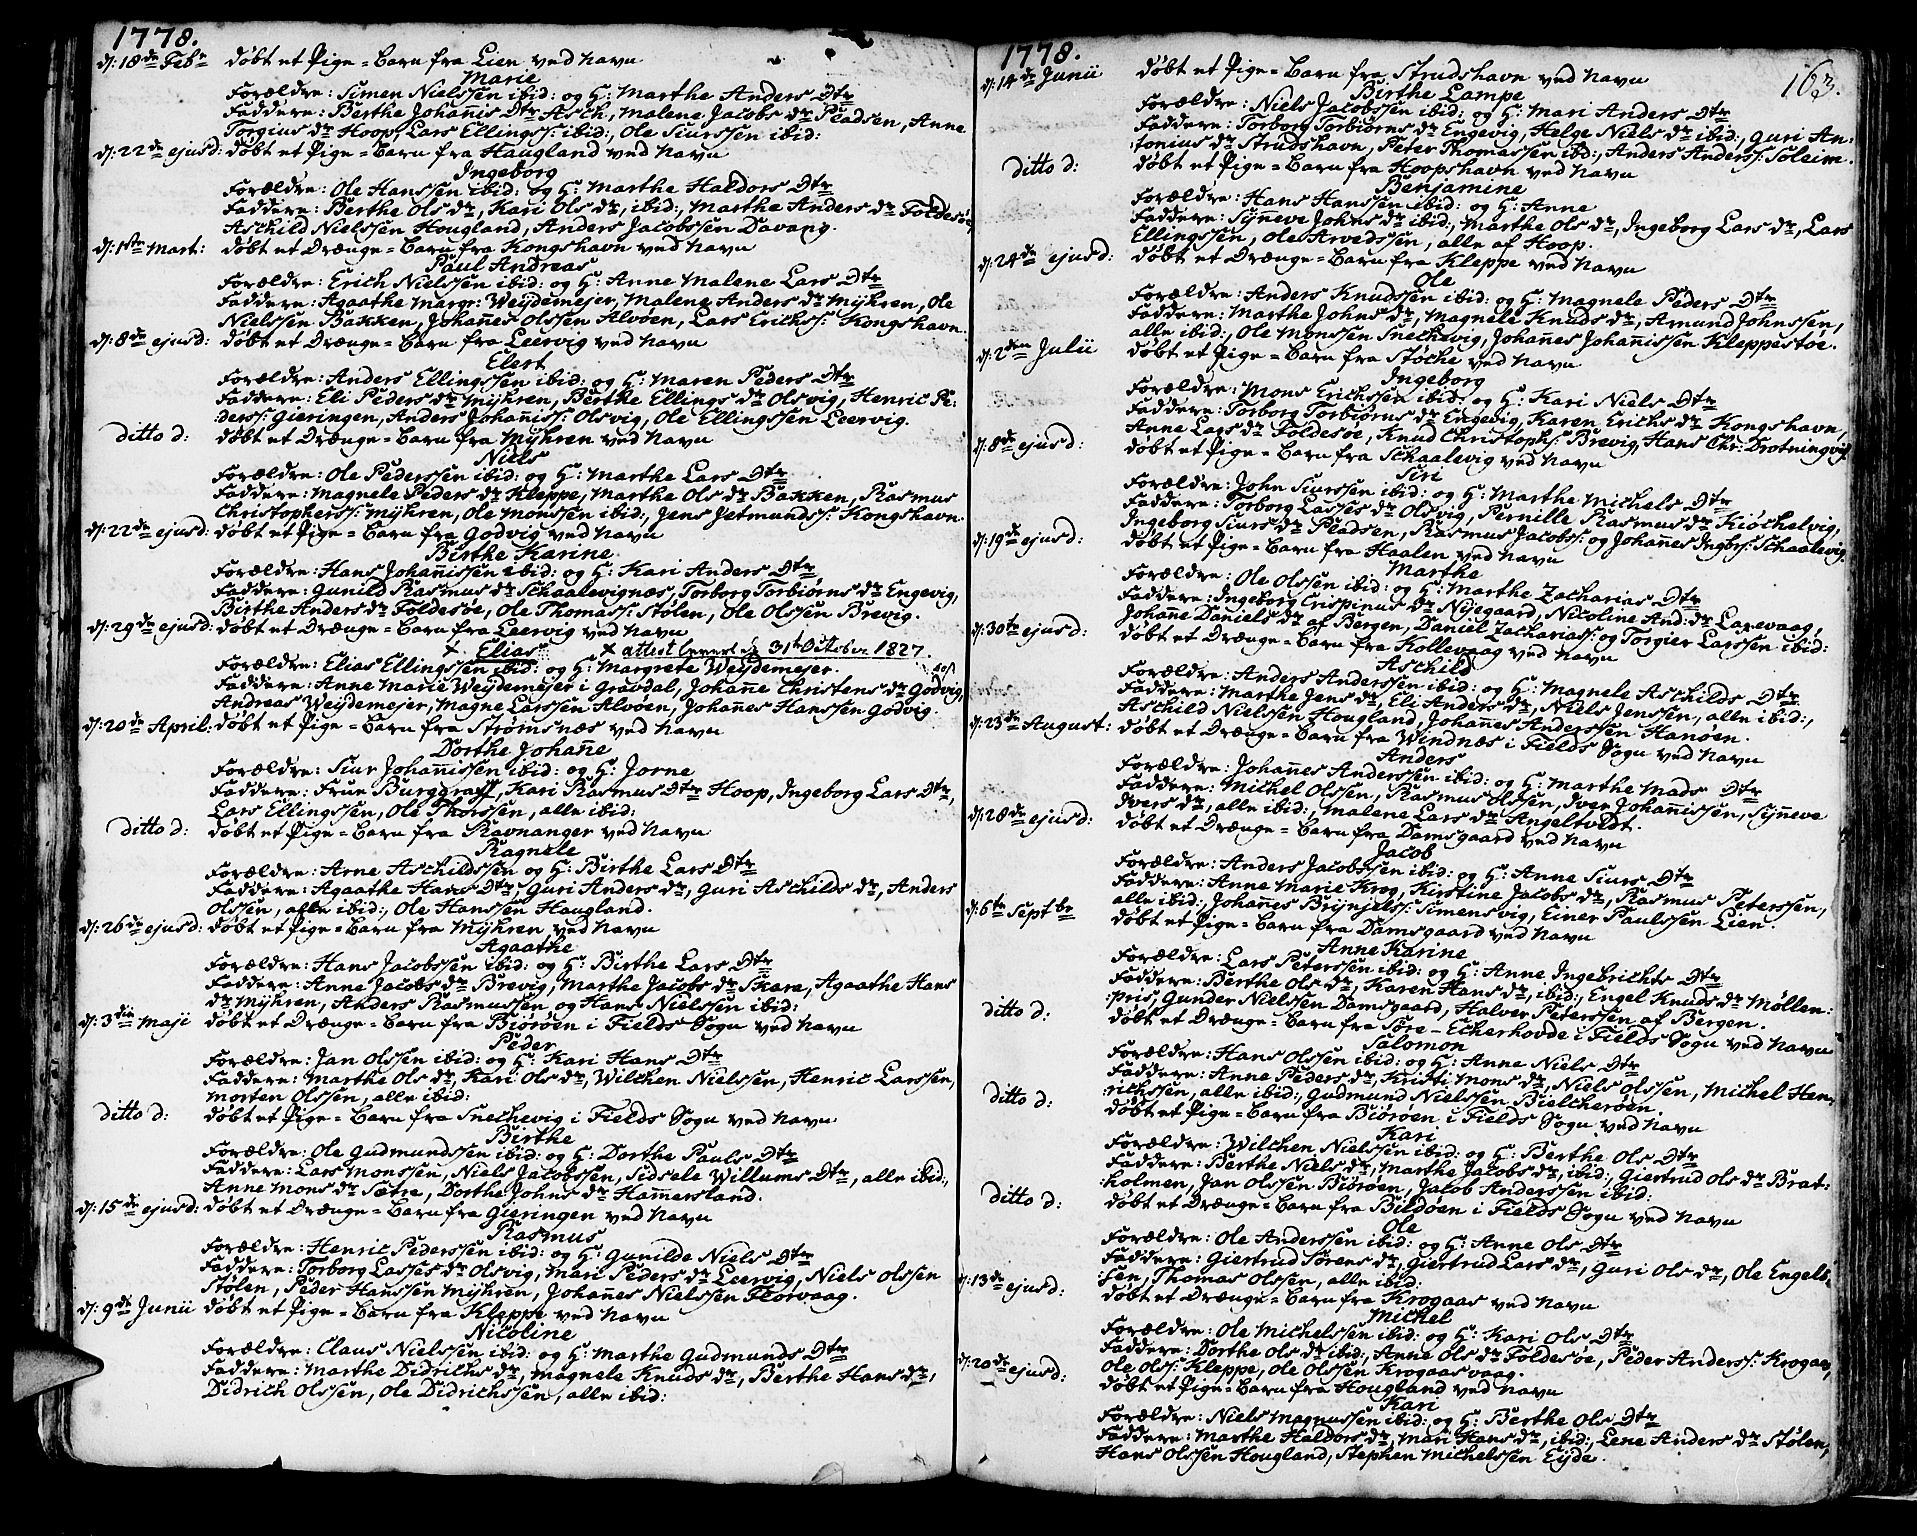 1778.
d: 18de Febr døbt et Pige-Barn fra Lien ved Navn
Marie
Forældre: Simen Nielssen ibid: og H: Marthe Anders Dtr
Faddere: Berthe Johannis Dtr Asch, Malene Jacobs dr Pladsen, Anne
Torgius dr Hoop, Lars Ellingss: ibid:, Ole Siurssen ibid:
d: 22de ejusd: døbt et Pige-Barn fra Haugland ved Navn
Ingeborg
Forældre: Ole Hanssen ibid: og H: Marthe Haldors Dtr
Faddere: Berthe Ols dr, Kari Ols dr, ibid:, Marthe Anders dr Foldesøe,
Aschild Nielssen Hougland, Anders Jacobssen Davang.
d: 1ste Mart: døbt et Drænge-Barn fra Kongshavn ved Navn
Paul Andreas
Forældre: Erich Nielssen ibid: og H: Anne Malene Lars Dtr
Faddere: Agaathe Margr: Weijdemejer, Malene Anders dr Mijhren, Ole
Nielssen Bakken, Johannes Olssen Alvøen, Lars Erichs: Kongshavn.
d: 8de ejusd: døbt et Drænge-Barn fra Leervig ved Navn
Elert
Forældre: Anders Ellingssen ibid: og H: Maren Peders Dtr
Faddere: Eli Peders dr Mijhren, Berthe Ellings dr Olsvig, Henric Pe:
derss: Gieringen, Anders Johanniss: Olsvig, Ole Ellingssen Leervig.
ditto d: døbt et Drænge-Barn fra Mijhren ved Navn
Niels
Forældre: Ole Pederssen ibid: og H: Marthe Lars Dtr
Faddere: Magnele Peders dr Kleppe, Marthe Ols dr Bakken, Rasmus
Christopherss: Mijhren, Ole Monssen ibid:, Jens Jetmundss: Kongshavn.
d: 22de ejusd: døbt et Pige-Barn fra Godvig ved Navn
Birthe Karine
Forældre: Hans Johannissen ibid: og H: Kari Anders Dtr
Faddere: Gunild Rasmus dr Schaalevignæs, Torborg Torbiørns dr Engevig,
Birthe Anders dr Foldesøe, Ole Thomass: Stølen, Ole Olssen Brevig.
d: 29de ejusd: døbt et Drænge-Barn fra Leervig ved Navn
+ Elias + attest leveret d 31te October 1827.
Forældre: Elias Ellingssen ibid: og H: Margrete Weijdemejer.
Faddere: Anne Marie Weijdemejer i Gravdal, Johanne Christens dr Godvig,
Andreas Weijdemejer, Magne Larssen Alvøen, Johannes Hanssen Godvig.
d: 20de April: døbt et Pige-Barn fra Strømsnæs ved Navn
Dorthe Johanne
Forældre: Siur Johannissen ibid: og H: Jorne
Faddere: Frue Burggraff, Kari Rasmus Dtr Hoop, Ingeborg Lars Dtr,
Lars Ellingssen, Ole Thorssen, alle ibid:
ditto d: døbt et Pige-Barn fra Ravnanger ved Navn
Ragnele
Forældre: Arne Aschildssen og H: Birthe Lars Dtr
Faddere: Agaathe Hans Dtr, Guri Anders dr, Guri Aschilds dr, Anders
Olssen, alle ibid:, Ole Hanssen Haugland.
d: 26de ejusd: døbt et Pige-Barn fra Mijhren ved Navn
Agaathe
Forældre: Hans Jacobssen ibid: og H: Birthe Lars Dtr
Faddere: Anne Jacobs dr Brevig, Marthe Jacobs dr Skare, Agaathe Hans
dr Mijhren, Anders Rasmussen og Hans Nielssen ibid:
d: 3die Maji døbt et Drænge-Barn fra Biørøen i Fields Sogn ved Navn
Peder
Forældre: Jan Olssen ibid: og H: Kari Hans Dtr
Faddere: Marthe Ols dr, Kari Ols dr, Wilchen Nielssen, Henric Larssen,
Morten Olssen, alle ibid:
ditto d: døbt et Pige-Barn fra Snechevig i Fields Sogn ved Navn
Birthe
Forældre: Ole Gudmundssen ibid: og H: Dorthe Pauls Dtr
Faddere: Lars Monssen, Niels Jacobssen, Sidsele Willums Dtr, alle ibid:,
Anne Mons dr Sætre, Dorthe Johns dr Hammersland.
d: 15de ejusd: døbt et Drænge-Barn fra Gieringen ved Navn
Rasmus
Forældre: Henric Pederssen ibid: og H: Gunilde Niels Dtr
Faddere: Torborg Lasses dr Olsvig, Mari Peders dr Leervig, Niels Olssen
Stølen, Peder Hanssen Mijhren, Johannes Nielssen Florvaag.
d: 9de Junii døbt et Pige-Barn fra Kleppe ved Navn
Nicoline
Forældre: Claus Nielssen ibid: og H: Marthe Gudmunds Dtr
Faddere: Marthe Didrichs dr, Magnele Knuds dr, Berthe Hans dr,
Didrich Olssen, Ole Didrichssen, alle ibid:
1778. 163.
d: 14de Junii døbt et Pige-Barn fra Strudshavn ved Navn
Birthe Lampe
Forældre: Niels Jacobssen ibid: og H: Mari Anders Dtr
Faddere: Torborg Torbiørns dr Engevig, Helge Niels dr ibid:, Guri An:
tonius dr Strudshavn, Peter Thomassen ibd:, Anders Anderss: Soleim.
ditto d: døbt et Pige-Barn fra Hoopshavn ved Navn
Benjamine
Forældre: Hans Hanssen ibid: og H: Anne
Faddere: Sijneve Johns dr ibid:, Marthe Ols dr, Ingeborg Lars dr, Lars
Ellingssen, Ole Arvedssen, alle af Hoop.
d: 24de ejusd: døbt et Drænge-Barn fra Kleppe ved Navn
Ole
Forældre: Anders Knudssen ibid: og H: Magnele Peders Dtr
Faddere: Marthe Johns dr, Magnele Knuds dr, Amund Johnssen,
alle ibid:, Ole Monssen Snechevig, Johannes Johannissen Kleppestøe.
d: 2den Julii døbt et Pige-Barn fra Støche ved Navn
Ingeborg
Forældre: Mons Erichssen ibid: og H: Kari Niels Dtr
Faddere: Torborg Torbiørns dr Engevig, Karen Erichs dr Kongshavn,
Anne Lars dr Foldesøe, Knud Christophs: Brevig, Hans Chr: Drotningvig
d: 8de ejusd: døbt et Pige-Barn fra Schaalevig ved Navn
Siri
Forældre: John Siurssen ibid: og H: Marthe Michels Dtr
Faddere: Torborg Lasses dr Olsvig, Pernille Rasmus dr Kiøchelvig,
Ingeborg Siurs dr Pladsen, Rasmus Jacobs: og Johannes Ingbrs: Schaalevig.
d: 19de ejusd: døbt et Pige-Barn fra Haalen ved Navn
Marthe
Forældre: Ole Olssen ibid: og H: Marthe Zacharias Dtr
Faddere: Ingeborg Crispinus dr Nijegaard, Nicoline And: dr Laxevaag,
Johanne Daniels dr af Bergen, Daniel Zachariass: og Torgier Larssen ibid:
d: 30te ejusd: døbt et Drænge-Barn fra Kollevaag ved Navn
Aschild
Forældre: Anders Anderssen ibid: og H: Magnele Aschilds Dtr
Faddere: Marthe Jens dr, Eli Anders dr, Niels Jenssen, alle ibid:,
Aschild Nielssen Hougland, Johannes Anderssen Hanøen.
d: 23de August: døbt et Drænge-Barn fra Windnæs i Fields Sogn ved Navn
Anders
Forældre: Johannes Anderssen ibid: og H: Marthe Mads Dtr
Faddere: Michel Olssen, Rasmus Olssen, Iver Johannissen, Sijneve
Ivers dr, alle ibid:, Malene Lars dr Angeltvedt.
d: 28de ejusd: døbt et Drænge-Barn fra Damsgaard ved Navn
Jacob
Forældre: Anders Jacobssen ibid: og H: Anne Siurs Dtr
Faddere: Anne Marie Krog, Kirstine Jacobs dr, Rasmus Peterssen,
alle ibid:, Johannes Brijnjels: Simensvig, Einer Paulssen Lien.
d: 6te Septbr døbt et Pige-Barn fra Damsgaard ved Navn
Anne Karine
Forældre: Lars Peterssen ibid: og H: Anne Ingebrichts Dtr
Faddere: Berthe Ols dr, Karen Hans dr, ibid:, Engel Knuds dr Møllen:
pris, Gunder Nielssen Damsgaard, Halver Peterssen af Bergen.
ditto d: døbt et Drænge-Barn fra Søre-Eckerhovde i Fields Sogn ved Navn
Salomon
Forældre: Hans Olssen ibid: og H: Anne Niels Dtr
Faddere: Anne Peders dr, Kristi Mons dr, Niels Olssen, Michel Hen:
richssen, alle ibid:, Gudmund Nielssen Bielcherøen.
ditto d: døbt et Pige-Barn fra Biørøen i Fields Sogn ved Navn
Kari
Forældre: Wilchen Nielssen ibid: og H: Berthe Ols Dtr
Faddere: Berthe Niels dr, Marthe Jacobs dr, ibid:, Giertrud Ols dr Brat:
holmen, Jan Olssen Biørøen, Jacob Anderssen ibid:
ditto d: døbt et Drænge-Barn fra Bildøen i Fields Sogn ved Navn
Ole
Forældre: Ole Anderssen ibid: og H: Anne Ols Dtr
Faddere: Giertrud Sørens dr, Giertrud Lars dr, Guri Ols dr, Ole Engels:
sen, Thomas Olssen, alle ibid:
d: 13de ejusd: døbt et Drænge-Barn fra Krogaas ved Navn
Michel
Forældre: Ole Michelssen ibid: og H: Kari Ols Dtr
Faddere: Dorthe Ols dr ibid:, Anne Ols dr Foldesøe, Peder Anderss: Krogaas,
Ole Ols: Kleppe, Ole Olssen Krogaasvaag.
d: 20de ejusd: døbt et Pige-Barn fra Hougland ved Navn
Kari
Forældre: Niels Magnussen ibid: og H: Berthe Ols Dtr
Faddere: Marthe Haldors dr, Mari Hans dr, ibid:, Lene Anders dr Stølen,
Hans Olssen Hougland, Stephen Michelssen Eijde.